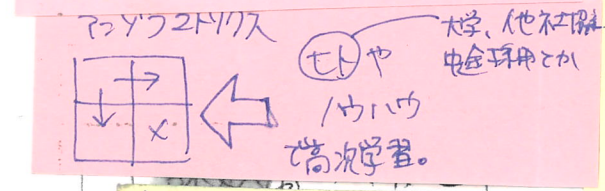 アンゾフマトリクス
ヒトや
ノウハウ
で高次学習。
大学、他社協業
中途採用とか
×